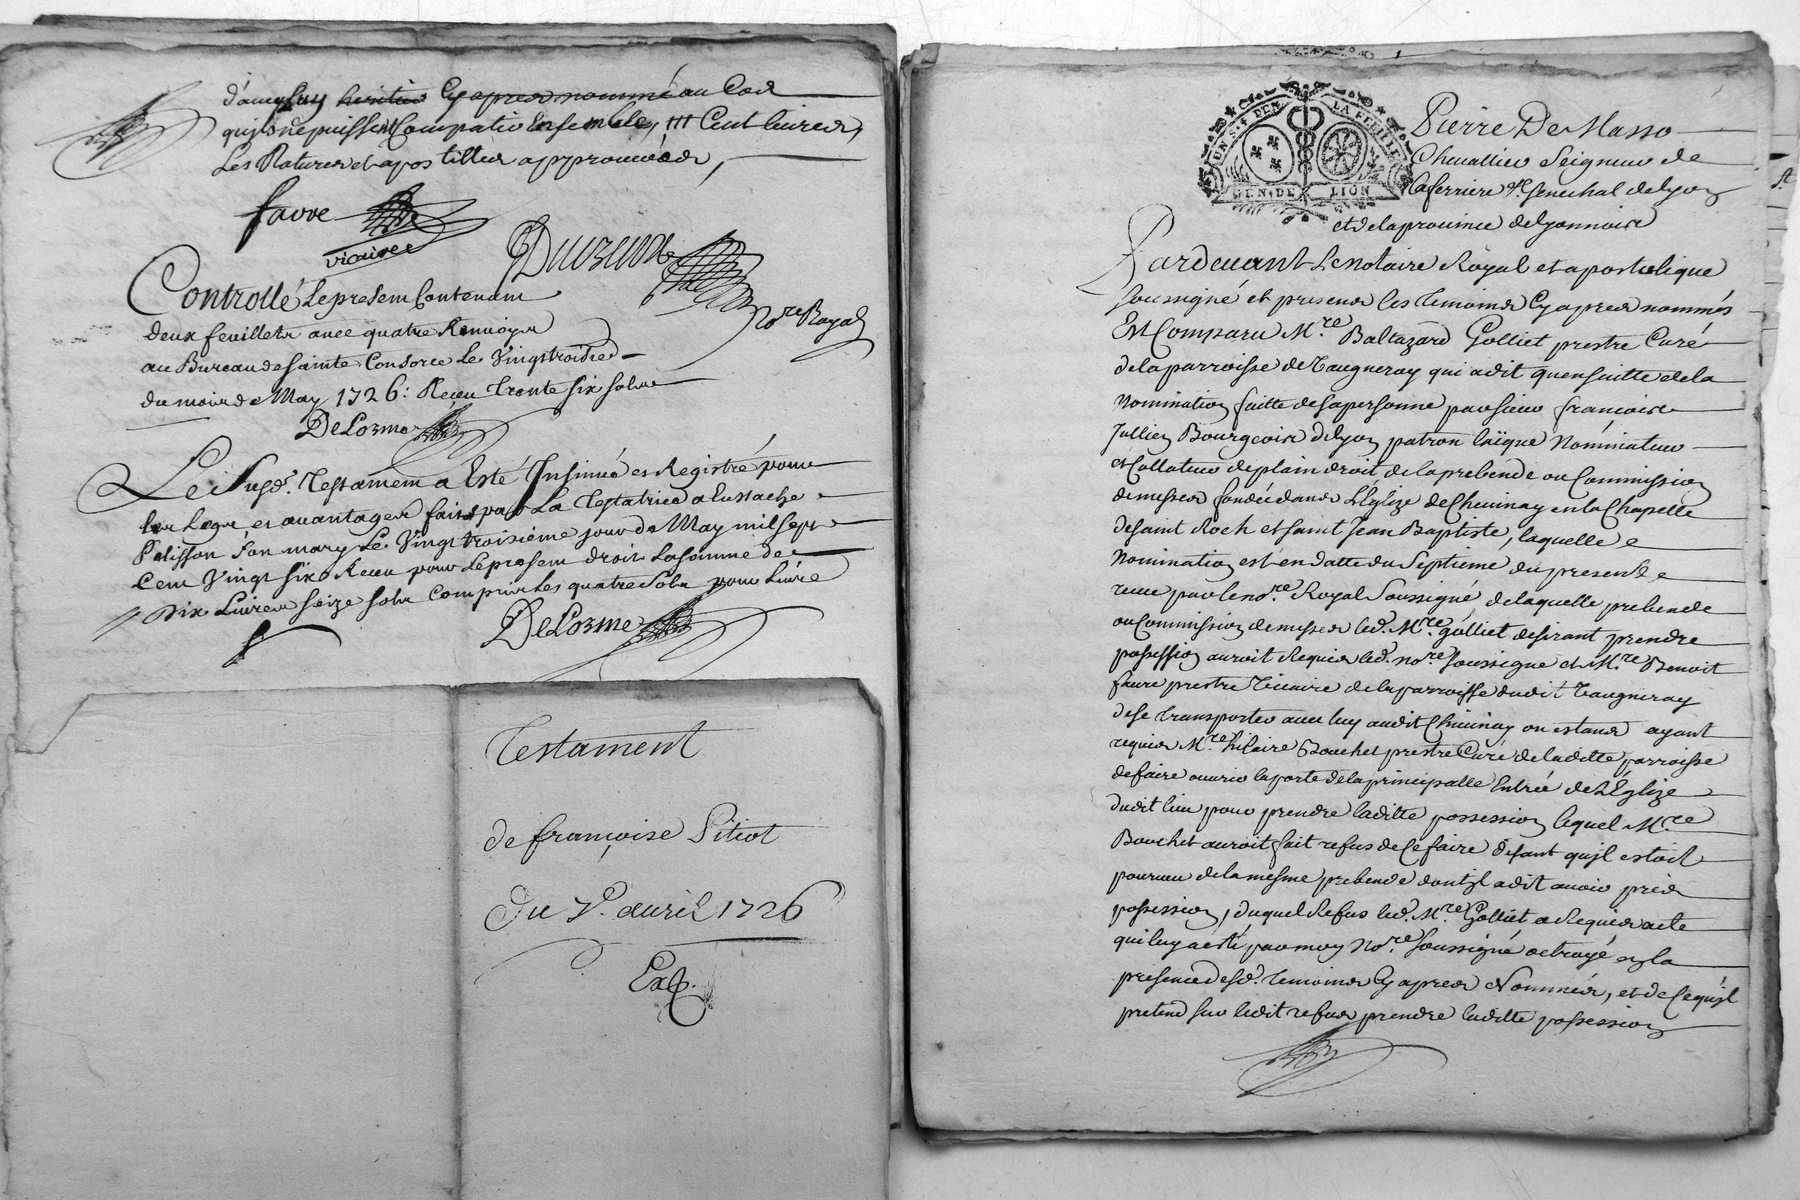 d'aucusuy heritier Cy apres nommé au Cas
qu'ils ne puissent Compatir Ensemble, III Cent livres,
Les Ratures et apostilles approuvées,
favre
vicaire
Duvzuvn
nore Royal
Controllé Le present Contenant
deux feuillets avec quatre Renvoyes
au Bureau de sainte Consorce Le Vingttroisie
du mois de May 1726: Receu Trente six sols
DeLorme
Le Susd. Testament a Esté Insinué et Registré pour
les Legs et avantages faits par La Testatrice a Eustache
Palisson son mary Le Vingt troisiéme jour de May mil sept
Cent Vingt six Receu pour Le present droit La somme de
Dix Livres seize sols Compris Les quatre sols pour Livre
DeLorme
Testament
de françoise Pitiot
Du 7e. avril 1726
Exp.
UN S. 4 DEN. LA FEUILLE
GEN. DE LION
Pierre De Masso
Chevallier Seigneur de
la ferriere &c senechal de Lyon
et de la province de Lyonnois
Pardevant Le notaire Royal et apostolique
soussigné et presens les Temoins Cy apres nommés
Est Comparu Mre. Baltazard Golliet prestre Curé
de la parroisse de Vaugneray qui a dit qu'ensuitte de la
Nomination faitte de sa personne par sieur françois
Jullien Bourgeois de Lyon patron laïque Nominateur
et Collateur de plain droit de la prebende ou Commission
de messes fondée dans L'Eglize de Chevinay en la Chapelle
de saint Roch et saint Jean Baptiste, laquelle
Nomination est en datte du septieme du present
receue par le nore. Royal soussigné de laquelle prebende
ou Commission de messes led. Mre. golliet desirant prendre
possession auroit Requis led. nore. soussigné et Mre. Benoit
faure prestre Vicaire de la parroisse dudit Vaugneray
de se transporter avec luy audit Chevinay ou estans ayant
requis Mre. hilaire Bouchet prestre Curé de laditte parroisse
de faire ouvrir la porte de la principalle Entrée de L'Eglize
dudit lieu pour prendre laditte possession lequel Mre.
Bouchet auroit fait refus de Ce faire disant qu'il estoit
pourveu de la mesme prebende dont il a dit avoir pris
possession, duquel Refus led. Mre. Golliet a Requis acte
qui luy a esté par moy Nore. soussigné octroyé en la
presence desd. Temoins Cy apres Nommés, et de Ce qu'il
pretend sur ledit refus prendre laditte possession